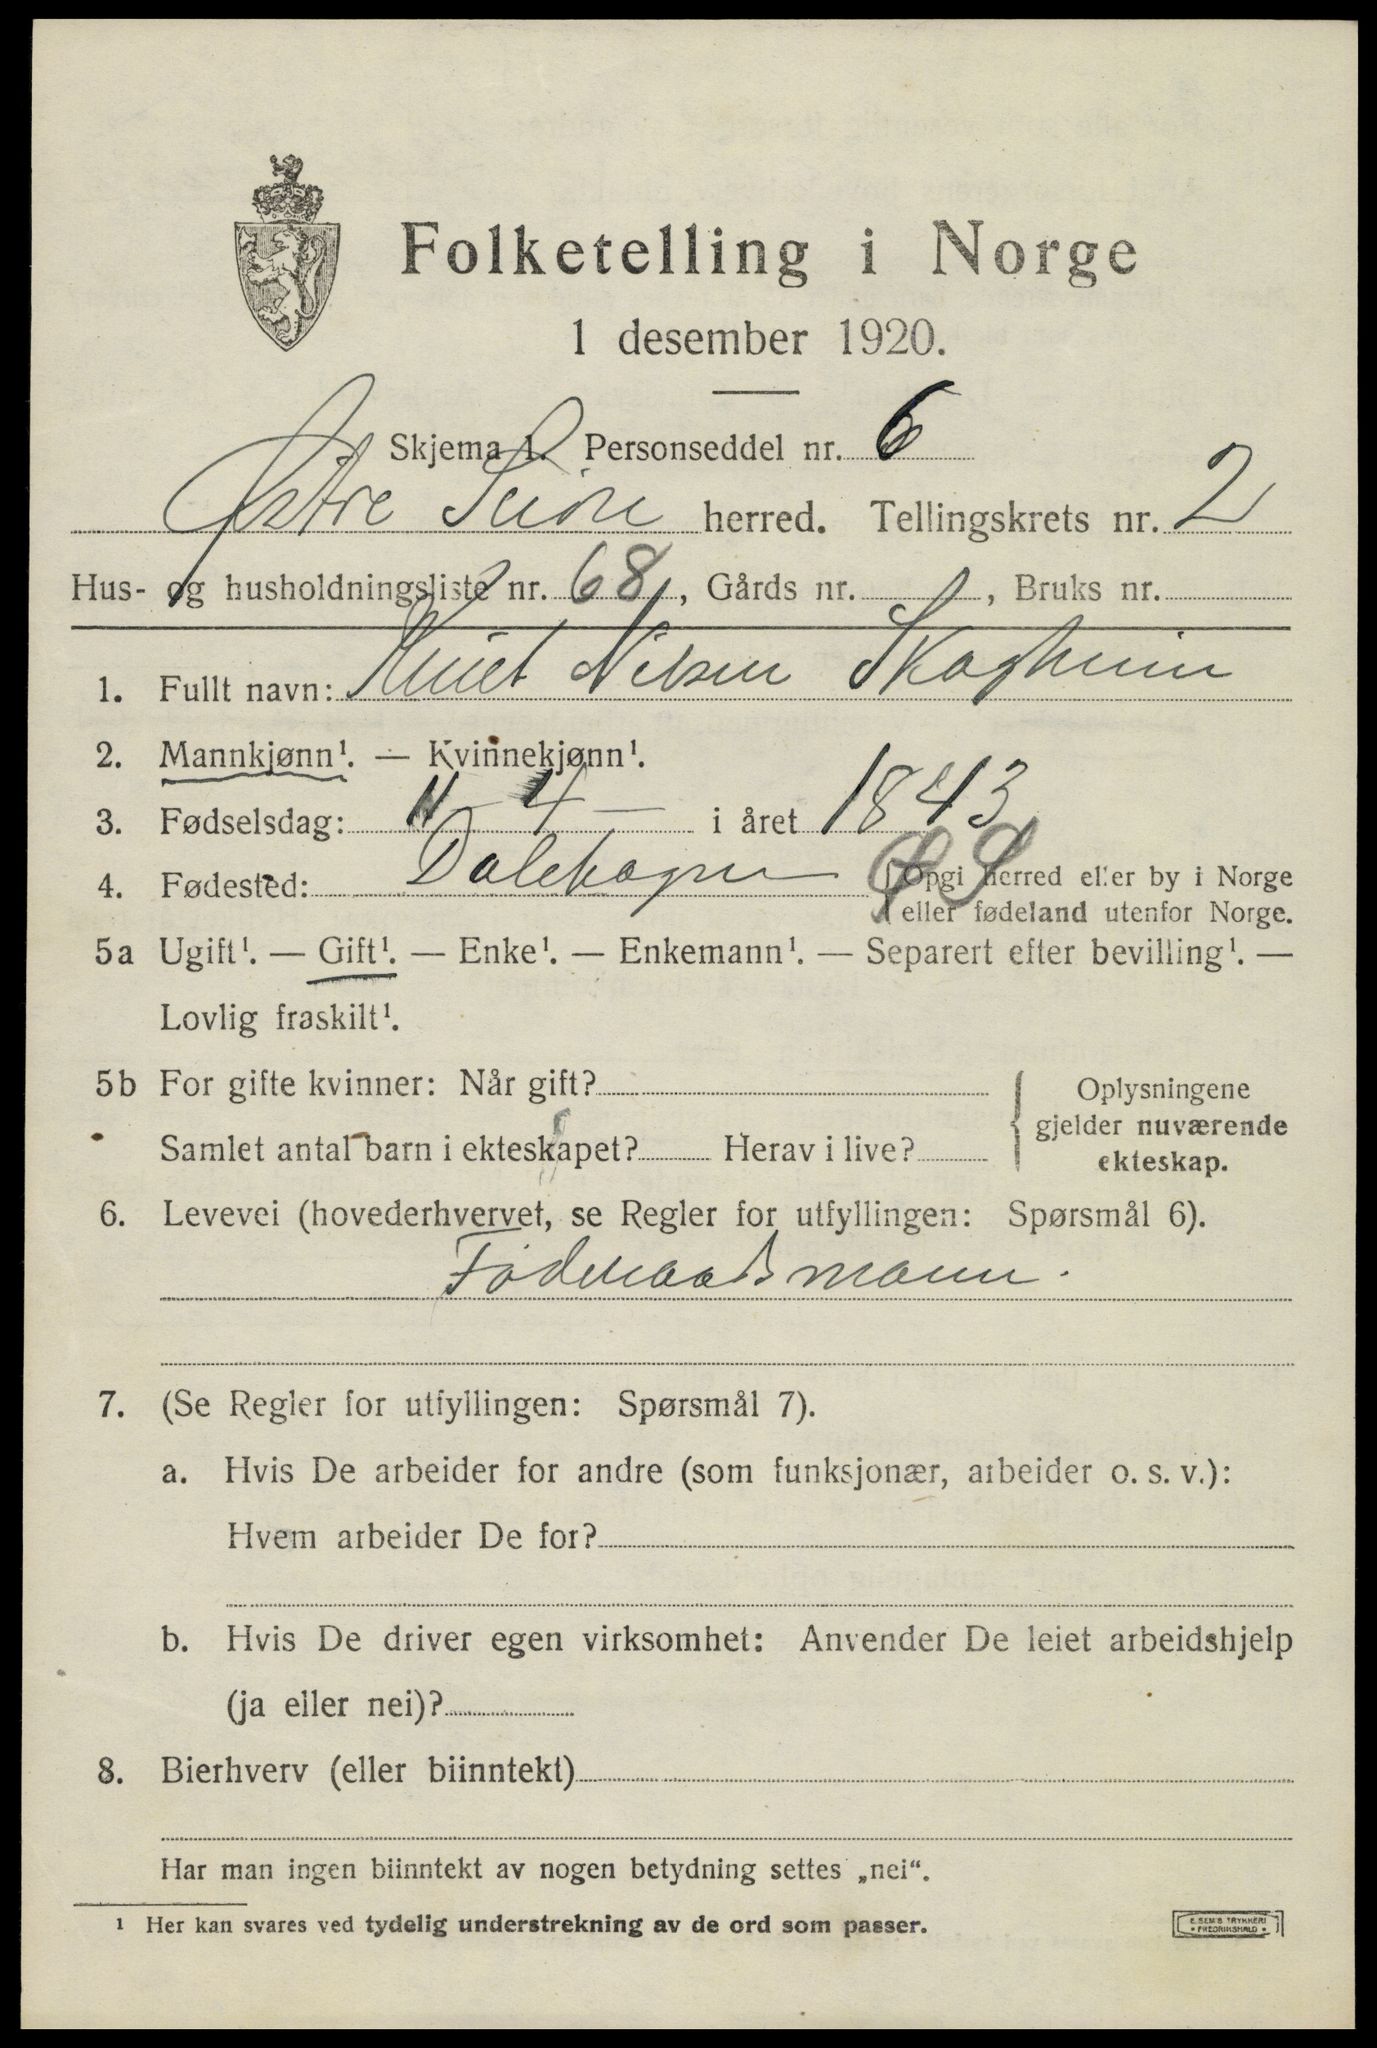 Folketelling i Norge
1 desember 1920.
Skjema 1. Personseddel nr. 6
Østre Slidre herred. Tellingskrets nr. 2
Hus- og husholdningsliste nr. 68, Gårds nr. , Bruks nr.
1. Fullt navn: Knut Nilsen Skogheim
2. Mannkjønn¹. — Kvinnekjønn¹.
3. Fødselsdag: 11 - 4 - i året 1843
4. Fødested: ØS { Opgi herred eller by i Norge
eller fødeland utenfor Norge.
5a Ugift¹. — Gift¹. — Enke¹. — Enkemann¹. — Separert efter bevilling¹. —
Lovlig fraskilt¹.
5b For gifte kvinner: Når gift?
Samlet antal barn i ekteskapet? Herav i live?
{ Oplysningene
gjelder nuværende
ekteskap.
6. Levevei (hovederhvervet, se Regler for utfyllingen: Spørsmål 6).
Føderaadsmann.
7. (Se Regler for utfyllingen: Spørsmål 7).
a. Hvis De arbeider for andre (som funksjonær, arbeider o. s. v.):
Hvem arbeider De for?
b. Hvis De driver egen virksomhet: Anvender De leiet arbeidshjelp
(ja eller nei)?
8. Bierhverv (eller biinntekt)
Har man ingen biinntekt av nogen betydning settes „nei“.
¹ Her kan svares ved tydelig understrekning av de ord som passer.
E. SEM'S TRYKKERI
• FREDRIKSHALD •